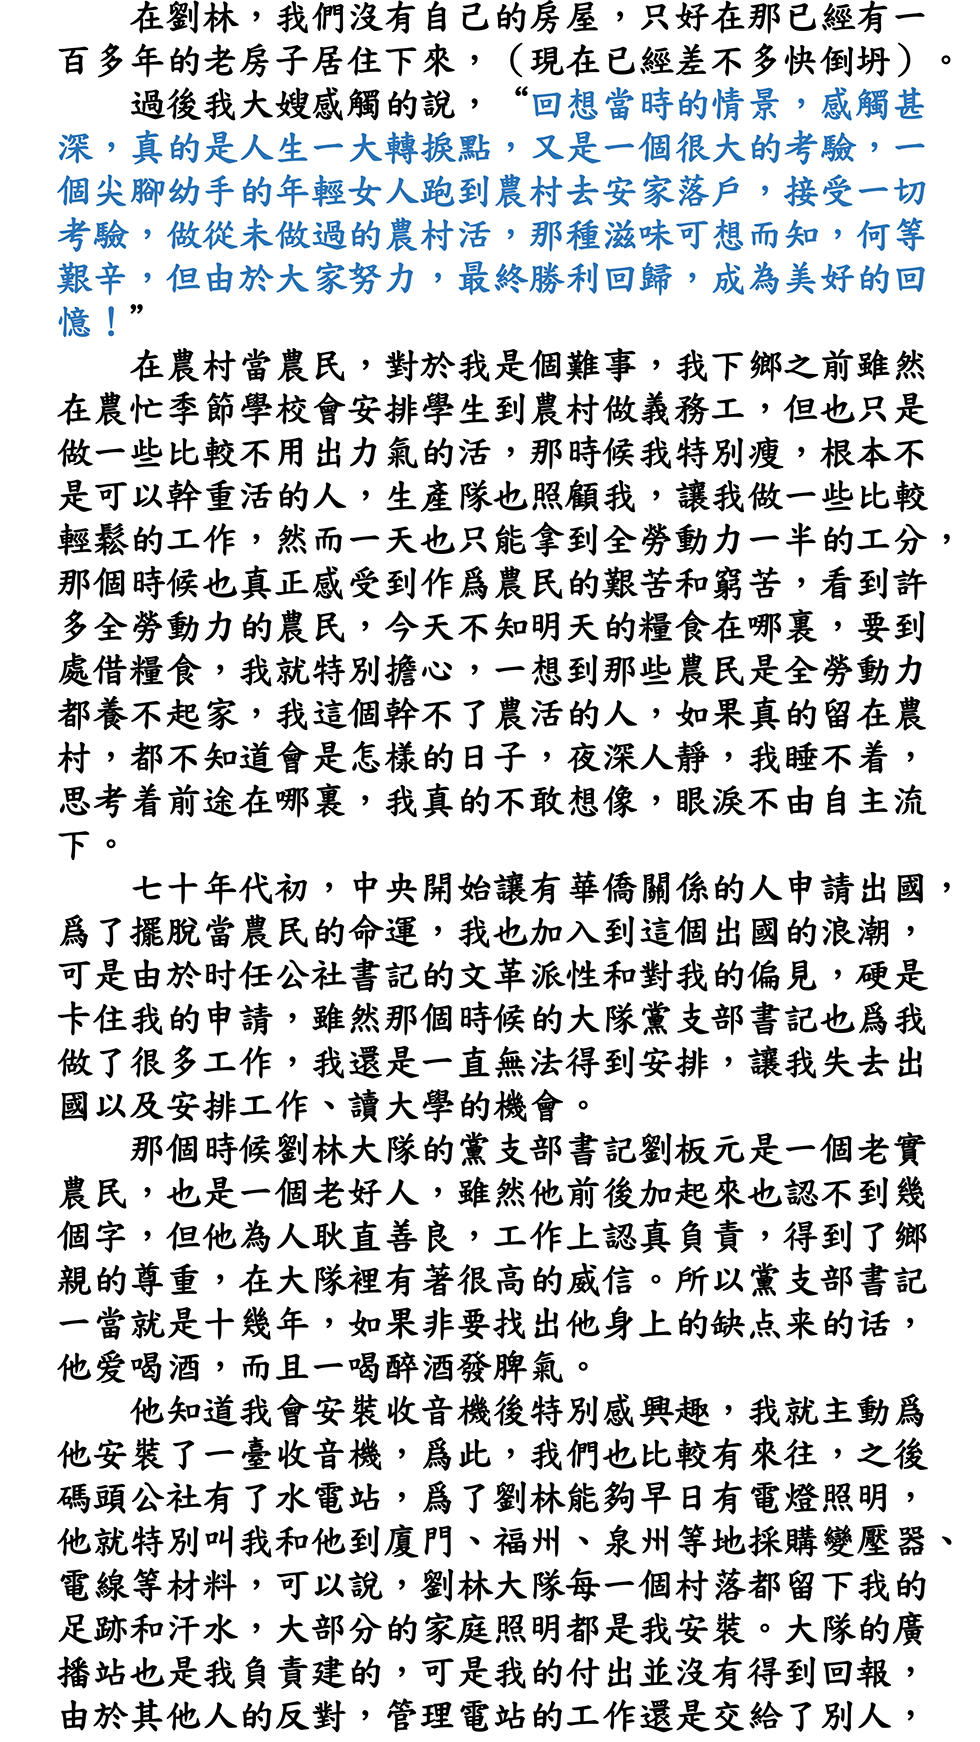 在劉林，我們沒有自己的房屋，只好在那已經有一
百多年的老房子居住下來，（現在已經差不多快倒坍）。
過後我大嫂感觸的說，“回想當時的情景，感觸甚
深，真的是人生一大轉捩點，又是一個很大的考驗，一
個尖腳幼手的年輕女人跑到農村去安家落戶，接受一切
考驗，做從未做過的農村活，那種滋味可想而知，何等
艱辛，但由於大家努力，最終勝利回歸，成為美好的回
憶！”
在農村當農民，對於我是個難事，我下鄉之前雖然
在農忙季節學校會安排學生到農村做義務工，但也只是
做一些比較不用出力氣的活，那時候我特別瘦，根本不
是可以幹重活的人，生產隊也照顧我，讓我做一些比較
輕鬆的工作，然而一天也只能拿到全勞動力一半的工分，
那個時候也真正感受到作爲農民的艱苦和窮苦，看到許
多全勞動力的農民，今天不知明天的糧食在哪裏，要到
處借糧食，我就特別擔心，一想到那些農民是全勞動力
都養不起家，我這個幹不了農活的人，如果真的留在農
村，都不知道會是怎樣的日子，夜深人靜，我睡不着，
思考着前途在哪裏，我真的不敢想像，眼淚不由自主流
下。
七十年代初，中央開始讓有華僑關係的人申請出國，
爲了擺脫當農民的命運，我也加入到這個出國的浪潮，
可是由於时任公社書記的文革派性和對我的偏見，硬是
卡住我的申請，雖然那個時候的大隊黨支部書記也爲我
做了很多工作，我還是一直無法得到安排，讓我失去出
國以及安排工作、讀大學的機會。
那個時候劉林大隊的黨支部書記劉板元是一個老實
農民，也是一個老好人，雖然他前後加起來也認不到幾
個字，但他為人耿直善良，工作上認真負責，得到了鄉
親的尊重，在大隊裡有著很高的威信。所以黨支部書記
一當就是十幾年，如果非要找出他身上的缺点来的话，
他爱喝酒，而且一喝醉酒發脾氣。
他知道我會安裝收音機後特別感興趣，我就主動爲
他安裝了一臺收音機，爲此，我們也比較有來往，之後
碼頭公社有了水電站，爲了劉林能夠早日有電燈照明，
他就特別叫我和他到廈門、福州、泉州等地採購變壓器、
電線等材料，可以說，劉林大隊每一個村落都留下我的
足跡和汗水，大部分的家庭照明都是我安裝。大隊的廣
播站也是我負責建的，可是我的付出並沒有得到回報，
由於其他人的反對，管理電站的工作還是交給了別人，